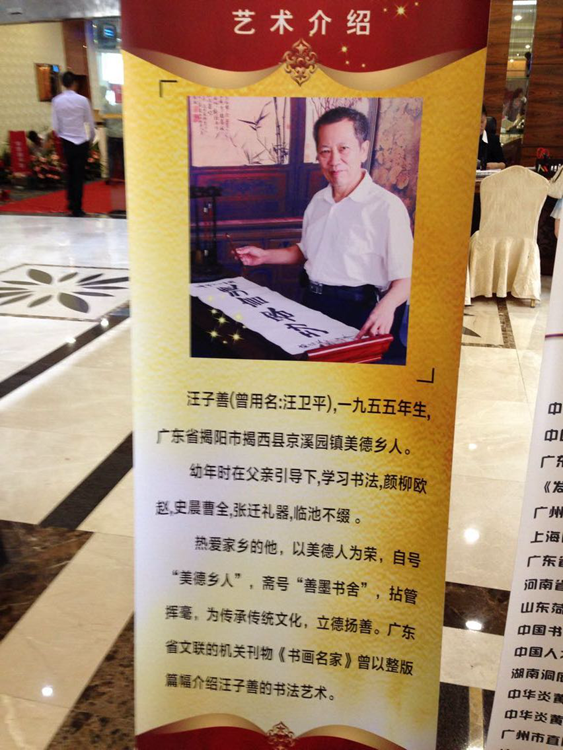 艺术介绍
汪子善(曾用名:汪卫平),一九五五年生,
广东省揭阳市揭西县京溪园镇美德乡人。
幼年时在父亲引导下,学习书法,颜柳欧
赵,史晨曹全,张迁礼器,临池不缀。
热爱家乡的他，以美德人为荣，自号
“美德乡人”，斋号“善墨书舍”，拈管
挥毫，为传承传统文化，立德扬善。广东
省文联的机关刊物《书画名家》曾以整版
篇幅介绍汪子善的书法艺术。
中
中国
广东
《发
广州
上海
广东省
河南省
山东菏
中国书
中国人
湖南洞庭
中华炎黄
中华炎黄
广州市直